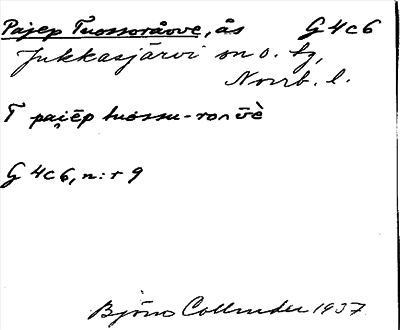 Pajep Tuossoråove, ås G4c6
Jukkasjärvi sn o. tg,
Norrb. l.
T pajēp tuossu-ronvè
G4c6, n:r 9
Björn Collinder 1937